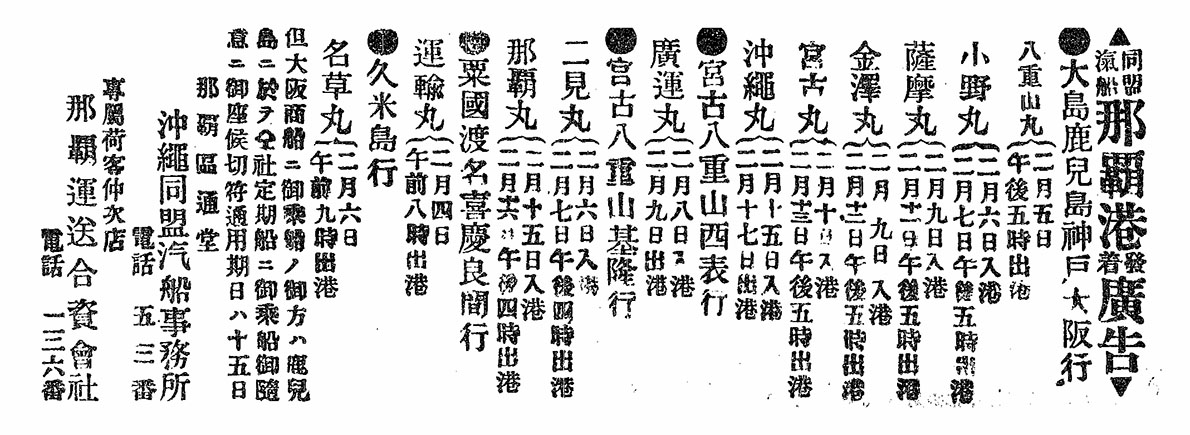 ▲同盟汽船那覇港發着廣告▼
●大島鹿兒島神戸大阪行
八重山丸{二月五日
午後五時出港
小野丸{二月六日入港
二月七日午後五時出港
薩摩丸{二月九日入港
二月十一日午後五時出港
金澤丸{二月九日入港
二月十二日午後五時出港
宮古丸{二月十日入港
二月十三日午後五時出港
沖繩丸{二月十五日入港
二月十七日出港
●宮古八重山西表行
廣運丸{二月八日入港
二月九日出港
●宮古八重山基隆行
二見丸{二月六日入港
二月七日午後四時出港
那覇丸{二月十五日入港
二月十六日午後四時出港
●粟國渡名喜慶良間行
運輸丸{二月四日
午前八時出港
●久米島行
名草丸{二月六日
午前九時出港
但大阪商船ニ御乘船ノ御方ハ鹿兒
島ニ於テ仝社定期船ニ御乘船御隨
意ニ御座候切符通用期日ハ十五日
那覇區通堂
沖繩同盟汽船事務所
電話 五三番
專屬荷客仲次店
那覇運送合資會社
電話 一三六番